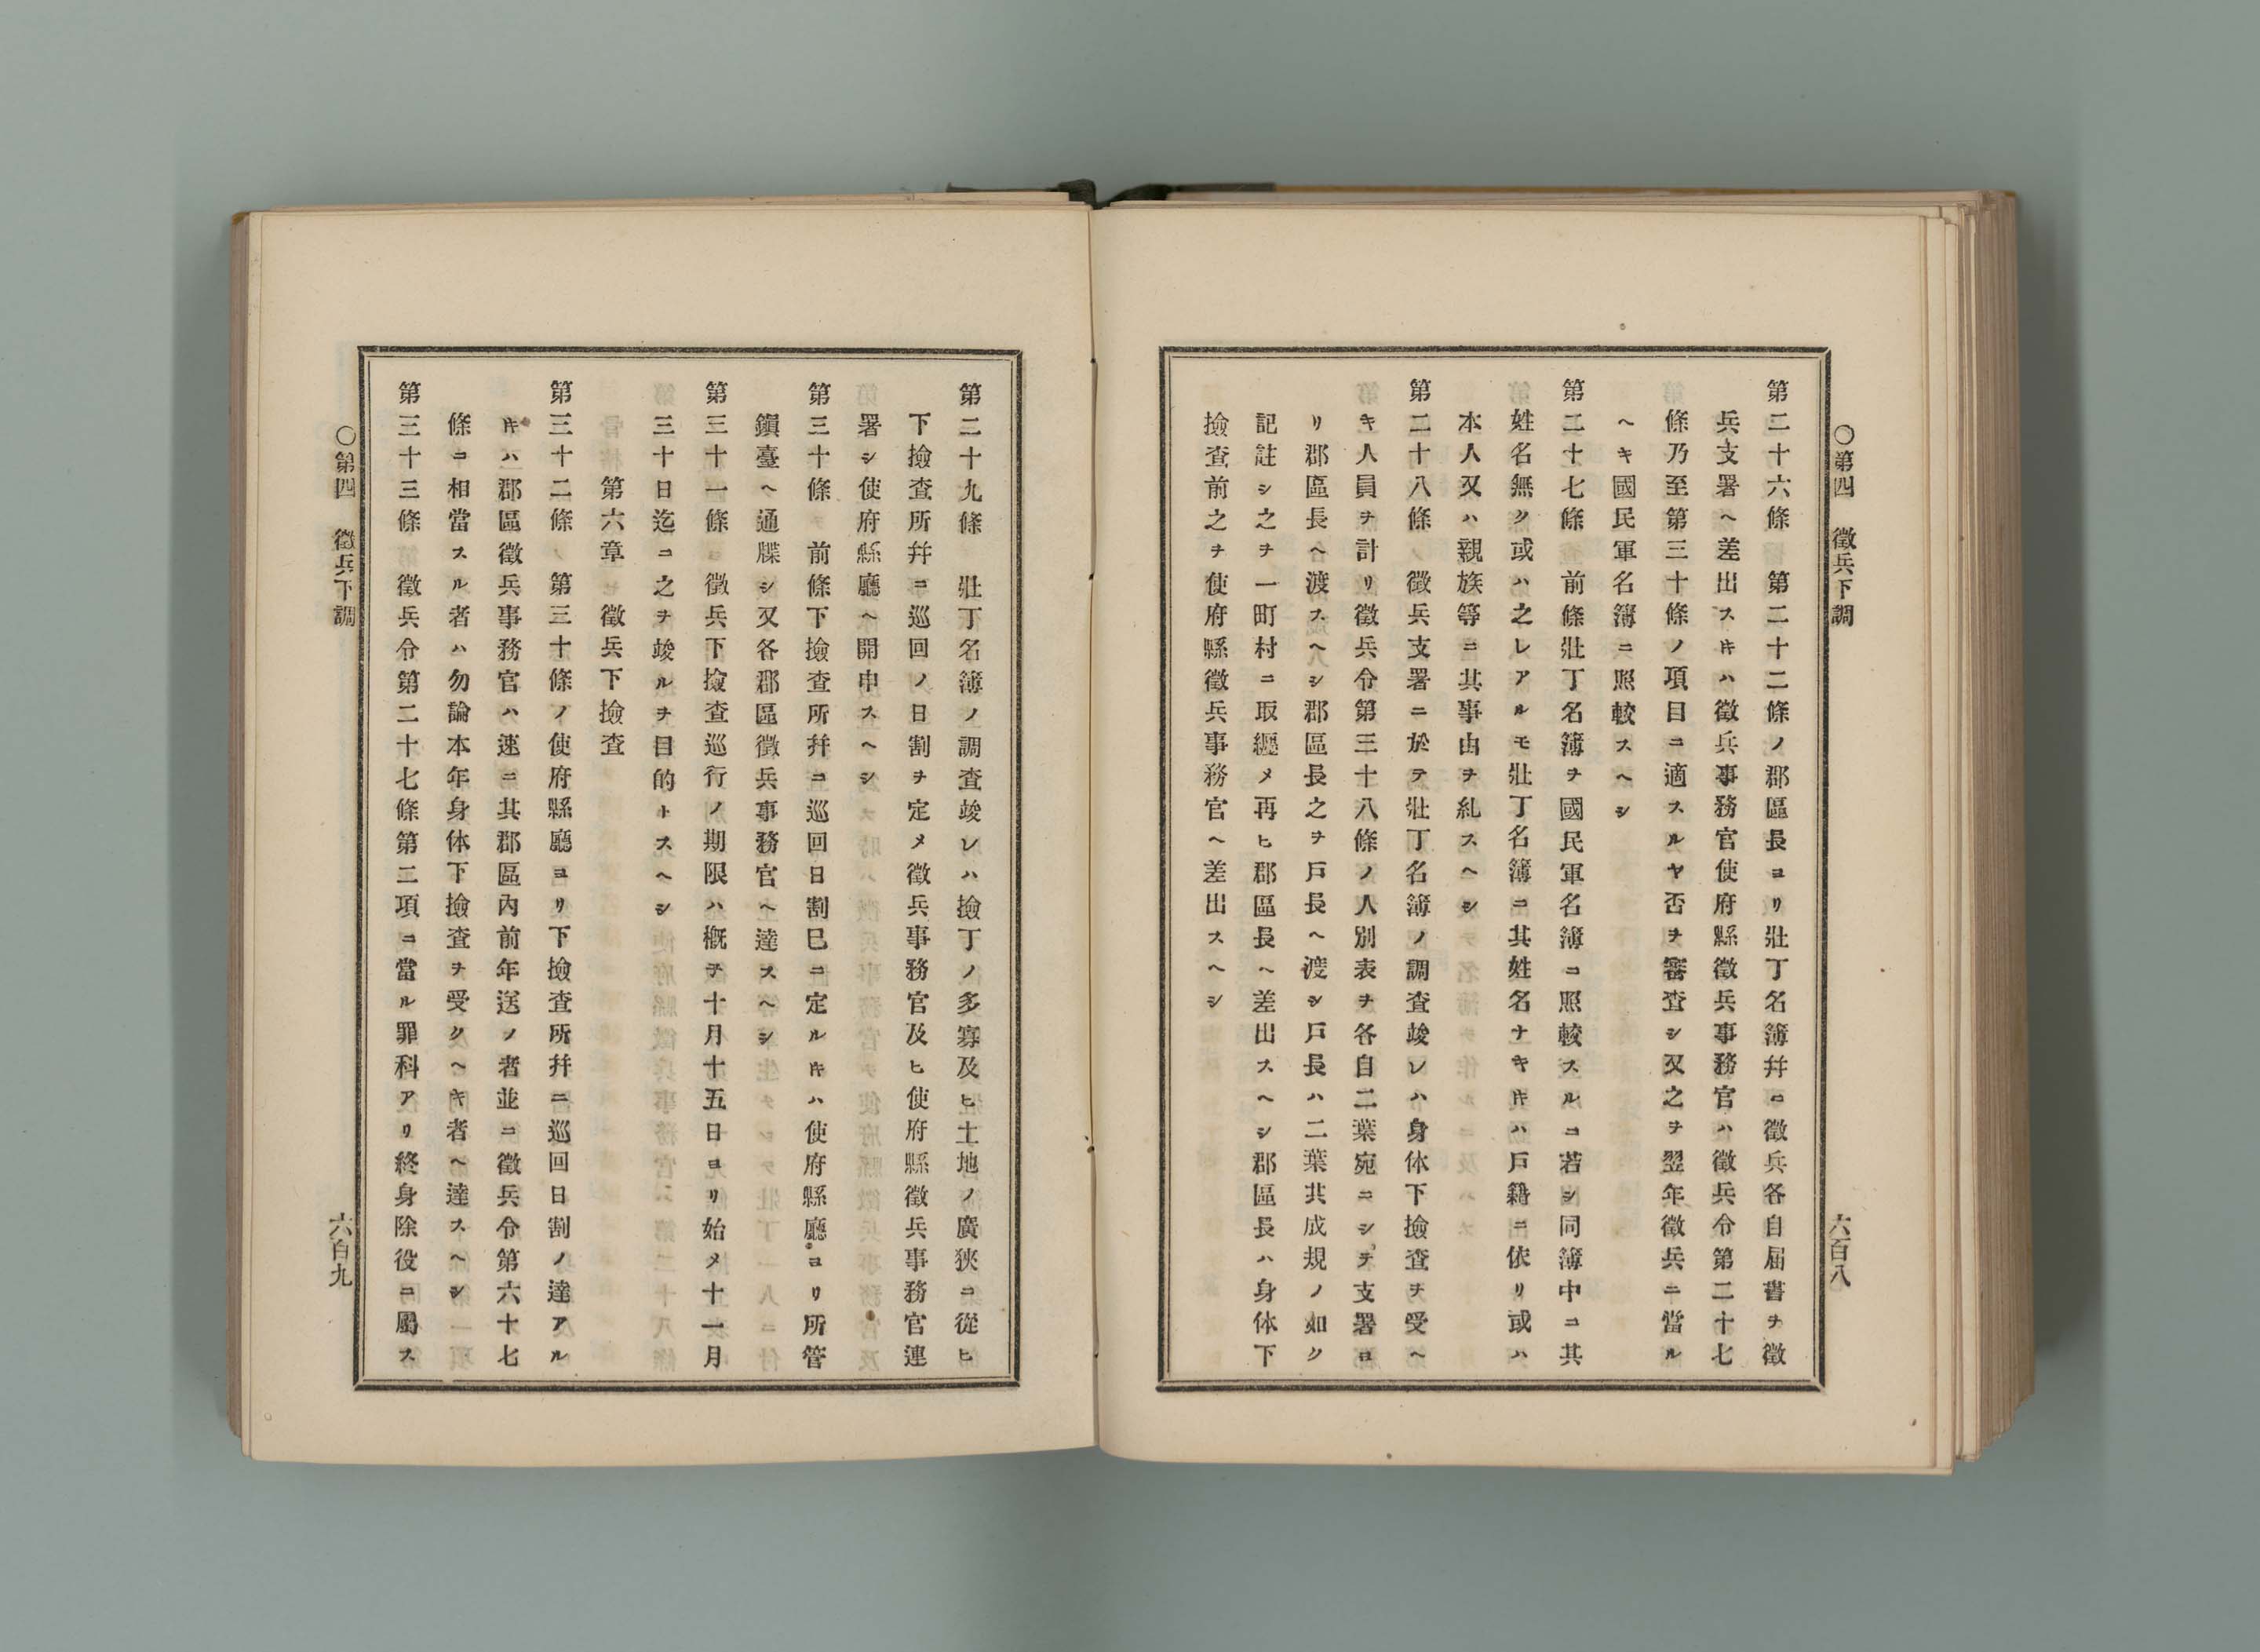 ○第四　徵兵下調　六百八
第二十六條　第二十二條ノ郡區長ヨリ壯丁名簿幷ニ徵兵各自届書ヲ徵
兵支署ヘ差出スキハ徵兵事務官使府縣徵兵事務官ハ徵兵令第二十七
條乃至第三十條ノ項目ニ適スルヤ否ヲ審査シ又之ヲ翌年徵兵ニ當ル
ヘキ國民軍名簿ニ照較スヘシ
第二十七條　前條壯丁名簿ヲ國民軍名簿ニ照較スルニ若シ同簿中ニ其
姓名無ク或ハ之レアルモ壯丁名簿ニ其姓名ナキキハ戸籍ニ依リ或ハ
本人又ハ親族等ニ其事由ヲ糺スヘシ
第二十八條　徵兵支署ニ於テ壯丁名簿ノ調査竣レハ身体下撿査ヲ受ヘ
キ人員ヲ計リ徵兵令第三十八條ノ人別表ヲ各自二葉宛ニシテ支署ヨ
リ郡區長ヘ渡スヘシ郡區長之ヲ戸長ヘ渡シ戸長ハ二葉共成規ノ如ク
記註シ之ヲ一町村ニ取纒メ再ヒ郡區長ヘ差出スヘシ郡區長ハ身体下
撿査前之ヲ使府縣徵兵事務官ヘ差出スヘシ
第二十九條　壯丁名簿ノ調査竣レハ撿丁ノ多寡及ヒ土地ノ廣狹ニ從ヒ
下撿査所幷ニ巡回ノ日割ヲ定メ徵兵事務官及ヒ使府縣徵兵事務官連
署シ使府縣廳ヘ開申スヘシ
第三十條　前條下撿査所幷ニ巡回日割巳ニ定ルキハ使府縣廳ヨリ所管
鎭臺ヘ通牒シ又各郡區徵兵事務官ヘ達スヘシ
第三十一條　徵兵下撿査巡行ノ期限ハ槪子十月十五日ヨリ始メ十一月
三十日迄ニ之ヲ竣ルヲ目的トスヘシ
第六章　徵兵下撿査
第三十二條　第三十條ノ使府縣廳ヨリ下撿査所幷ニ巡回日割ノ達アル
キハ郡區徵兵事務官ハ速ニ其郡區內前年送ノ者並ニ徵兵令第六十七
條ニ相當スル者ハ勿論本年身体下撿査ヲ受クヘキ者ヘ達スヘシ
第三十三條　徵兵令第二十七條第二項ニ當ル罪科アリ終身除役ニ屬ス
○第四　徵兵下調　六百九